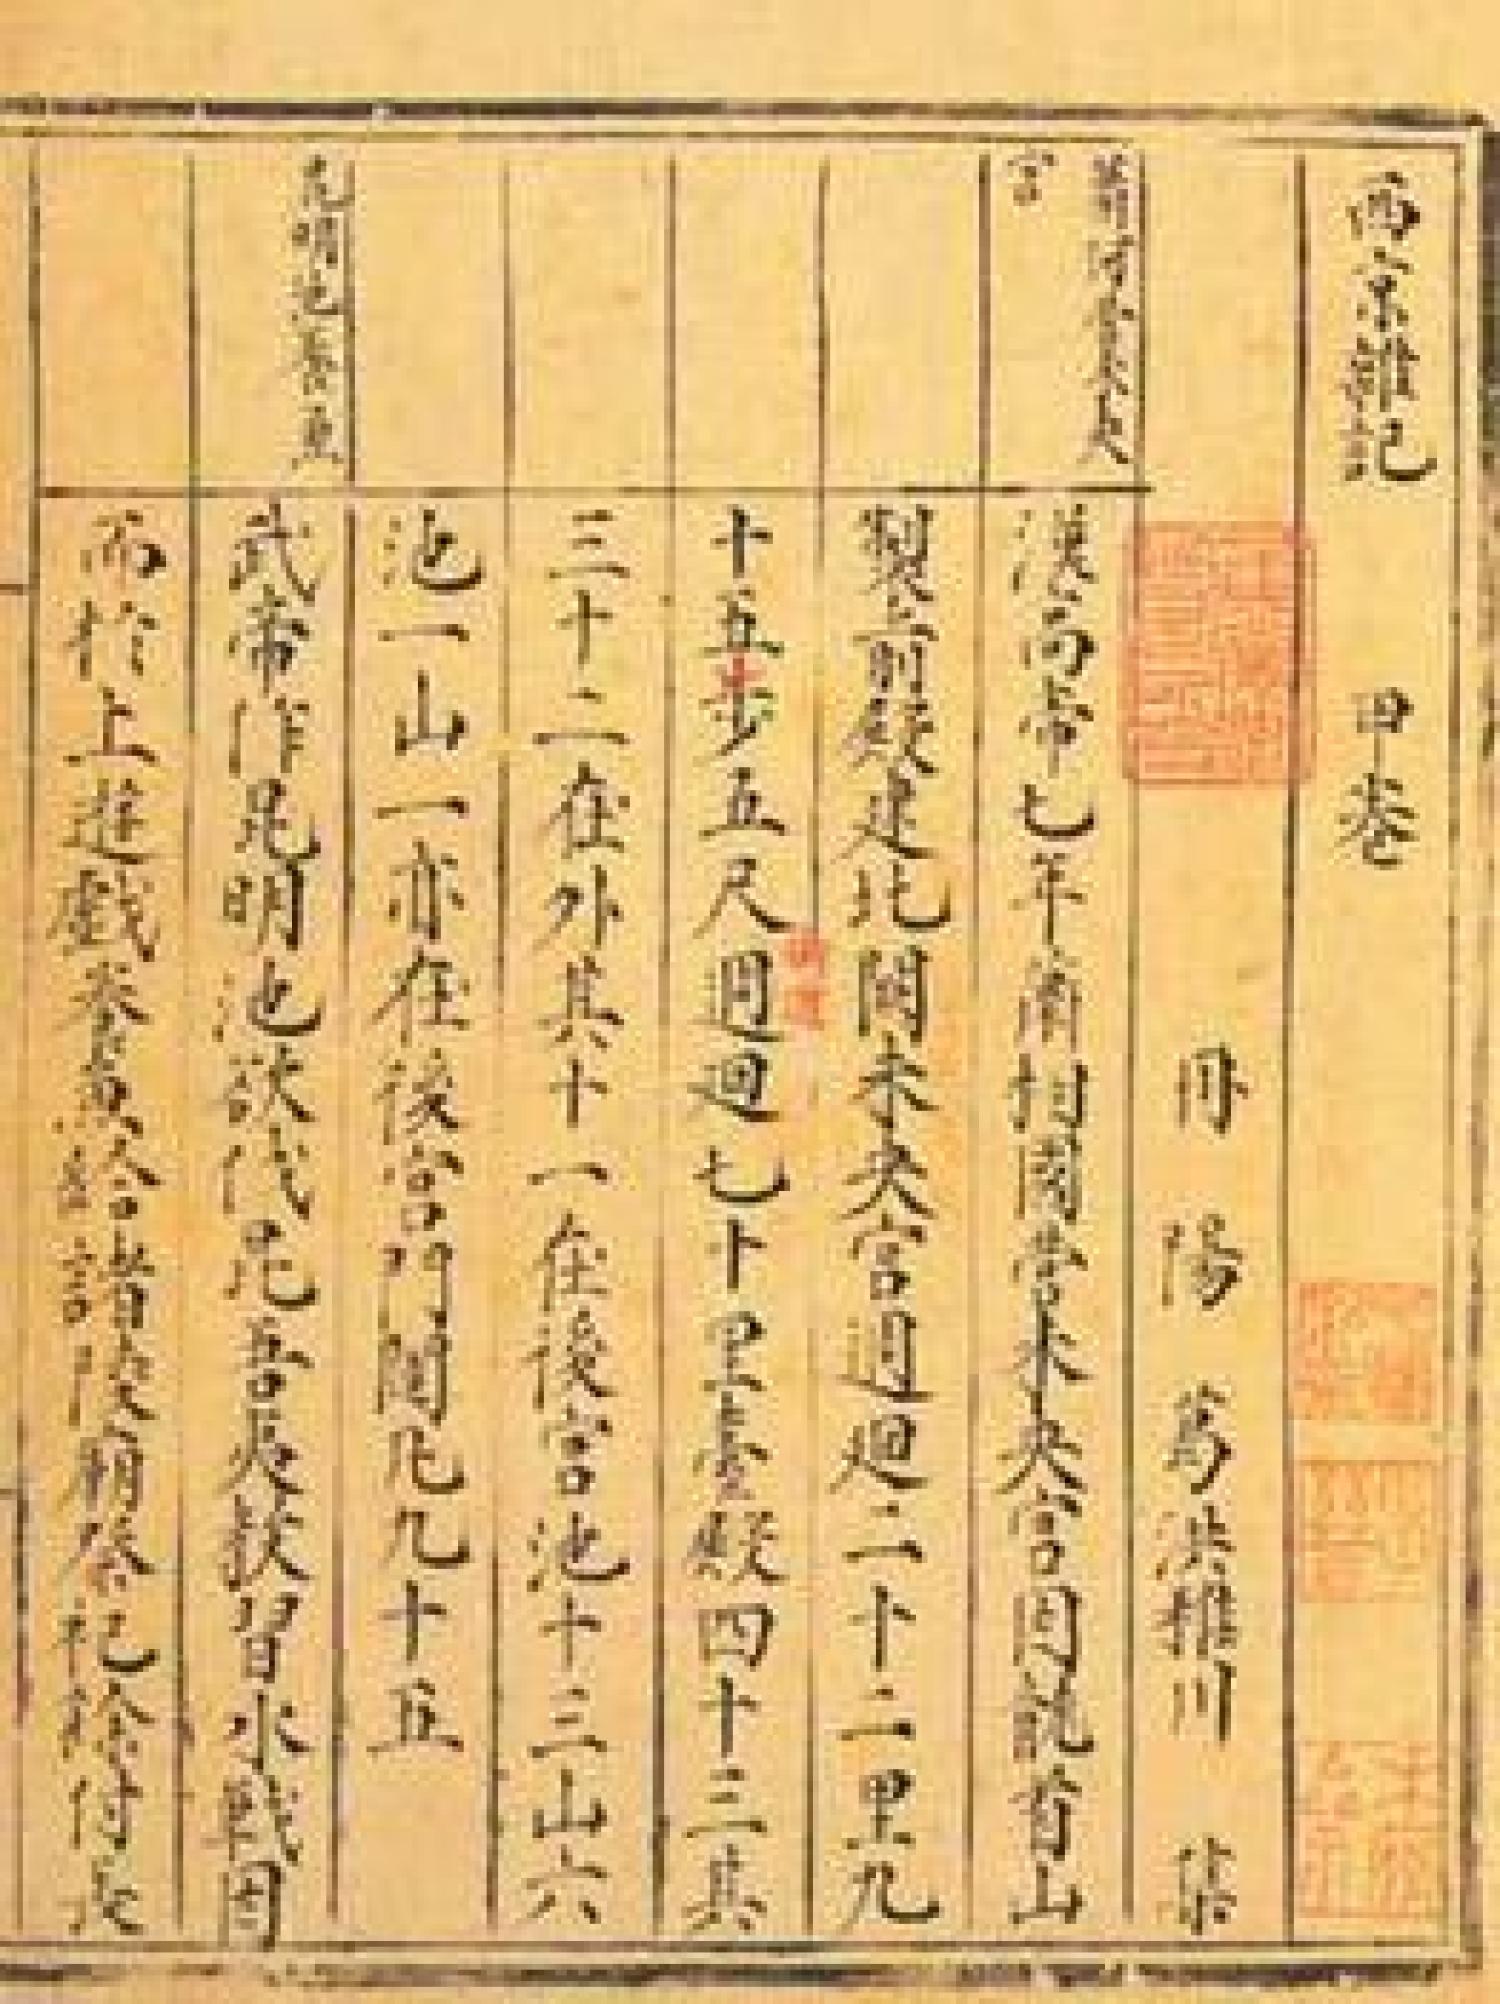 西京雜記 甲卷
丹陽葛洪稚川集
蕭何營未央
宮
漢高帝七年蕭相國營未央宮因龍首山
製前殿建北闕未央宮週廻二十二里九
十五步五尺週廻七十里臺殿四十三其
三十二在外其十一在後宮池十三山六
池一山一亦在後宮門闥凡九十五
昆明池養魚
武帝作昆明池欲伐昆吾夷教習水戰因
而於上遊戲養魚